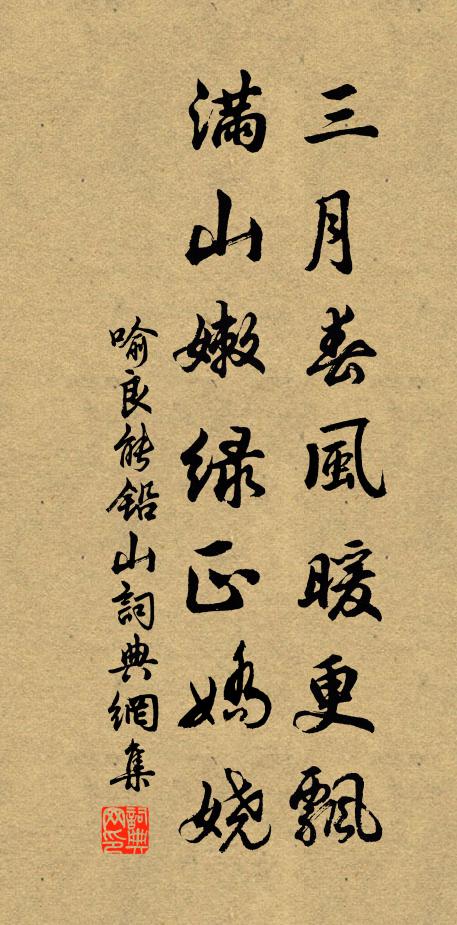 三月春風暖更飄
滿山嫩綠正嬌嬈
喻良能鉛山詞典網集
詞典網印